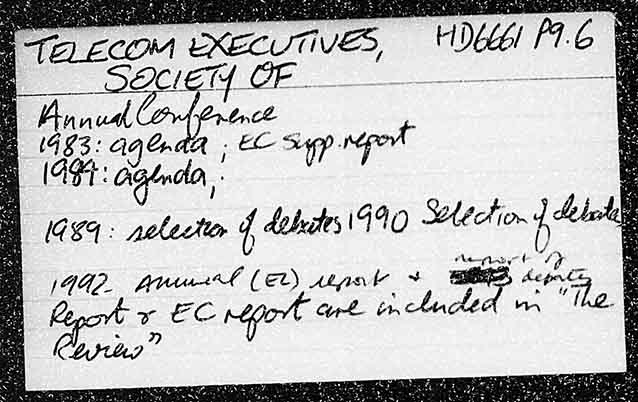 TELECOM EXECUTIVES, HD6661 P9.6
SOCIETY OF
Annual Conference
1983: agenda; EC Supp. report
1984: agenda;
1989: selection of debates 1990 Selection of debates
report of
1992- Annual (EC) report + debates
Report & EC report are included in "The
Review"